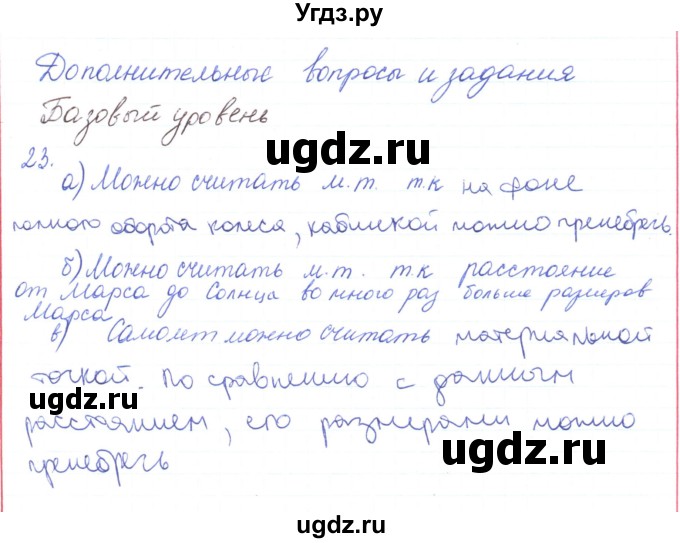 Угдз.ру
Дополнительные вопросы и задания
Базовый уровень
ugdz.ru
23.
а) Можно считать м.т. т.к на фоне
полного оборота колеса, кабинкой можно пренебречь.
ugdz.ru
б) Можно считать м.т. т.к расстояние
от Марса до Солнца во много раз больше размеров
Марса
в) Самолет можно считать материальной
точкой. По сравнению с данным
ugdz.ru
расстоянием, его размерами можно
ugdz.ru
пренебречь
ugdz.ru